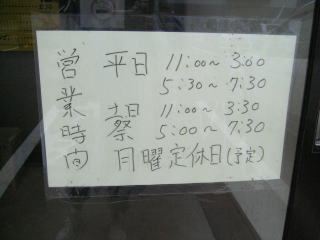 営業時間
平日 11:00～3:00
5:30～7:30
土日祭 11:00～3:30
5:00～7:30
月曜定休日(予定)